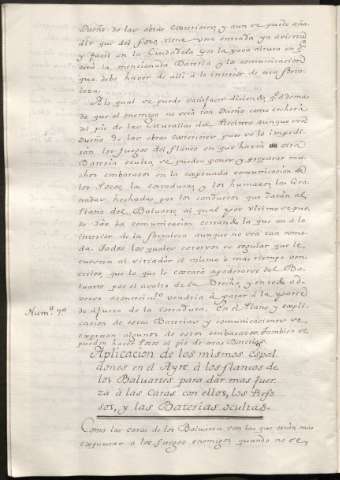 Dueño de las obras exteriores; y aun se puede aña-
dir que del foso tiene una entrada ya abierta
y facil en la Ciudadela por la poca altura en qe
está la mencionada Bateria y la comunicacion
que debe haver de alli a lo interior de esta forta-
leza.
A lo qual se puede satisfacer diciendo, qe ademas
de que el enemigo no será tan Dueño como
al pie de las Murallas del Recinto aunque sea
Dueño de las obras exteriores, pues se lo impedi-
rán los fuegos del flanco en que havrá otra
Bateria oculta, se pueden poner y preparar mu-
chos embarazos en la expresada comunicacion de
los fosos, la cortadura, y los humazos, las Gra-
nadas hechadas por los conductos que darán al
plano del Baluarte, al qual por ultimo se pue-
de la comunicacion cerrando la que va a lo
interior de la fortaleza aunque no sea tan como-
da. Todos los quales estorvos es regular que le
cuesten al sitiador el mismo o mas tiempo ven-
cerlos, que lo que le costará apoderarse del Ba-
luarte, por el asalto de la Brecha, y en todo ad-
verso vendria a parar a la parte
de afuera de la cortadura. En el Plano y expli-
cacion de estas Baterias y comunicaciones se
expresan algunos de estos embarazos
pueden hacer fosos al pie de otras Baterias.
Num.º 70
Aplicacion de los mismos Espal-
dones en el Ayre à los flancos de
los Baluartes para dar mas fuer-
za à las Caras con ellos, los Fo-
sos, y las Baterias ocultas.
Como las caras de los Baluartes son las que están mas
expuestas a los fuegos enemigos quando no se